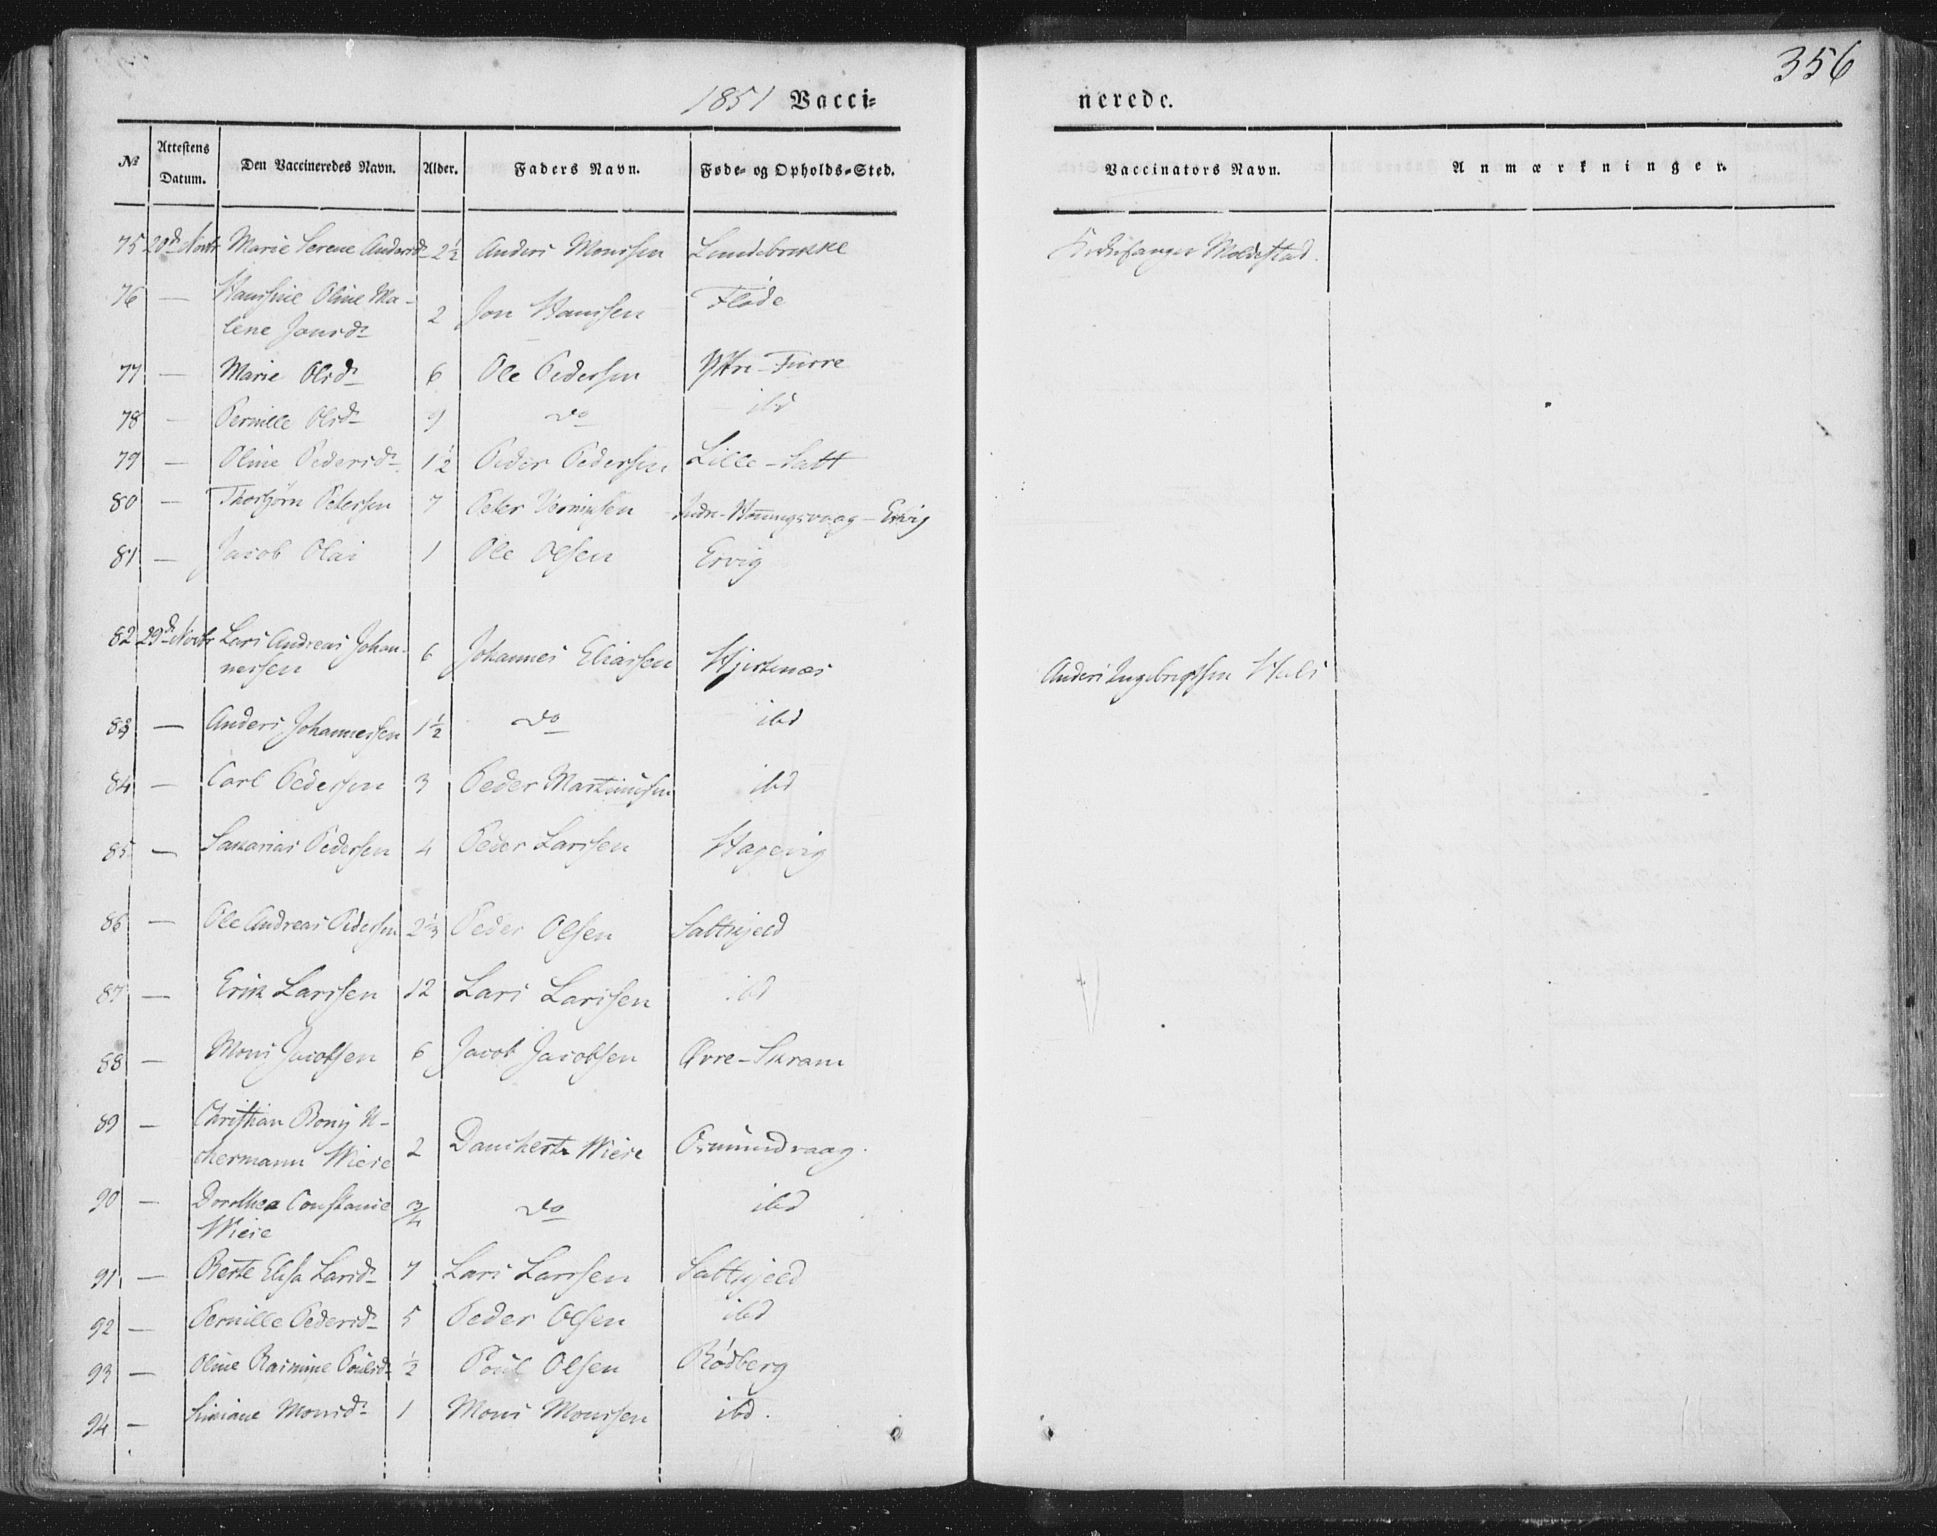 356
1851 Vacci=
nerede.
No Attestens Datum. Den Vaccineredes Navn. Alder. Faders Navn. Føde- og Opholds-Sted. Vaccinators Navn. Anmærkninger.
75 20d Novbr Marie Serene Andersd 2½ Anders Monssen Lundebrekke Moldestad.
76 — Hanssine Oline Ma-
lene Jonsdr 2 Jon Hanssen Flode
77 — Marie Olsdr 6 Ole Pedersen Yttre-Furre
78 — Pernille Olsdr 9 do ibd
79 — Oline Pedersdr 1½ Peder Pedersen Lille-Satt
80 — Thorbjørn Petersen 7 Peter Indre-Houngsvaag-Ervig
81 — Jacob Olai 1 Ole Olsen Ervig
82 29d Novbr Lars Andreas Johan-
nessen 6 Johannes Eliassen Hjertenæs Anders Ingebrigtsen Hals
83 — Anders Johannessen 1½ do ibd
84 — Carl Pedersen 3 Peder Martinussen ibd
85 — Sakarias Pedersen 4 Peder Larssen Hagevig
86 — Ole Andreas Pedersen 2⅓ Peder Olsen Sattsjeld
87 — Erik Larssen 12 Lars Larssen ibd
88 — Mons Jacobsen 6 Jacob Jacobsen Øvre-Skram
89 — Christian Bony U-
chermann Wiese 2 Danckertz Wiese Osmundvaag.
90 — Dorothea Constance
Wiese ¾ do ibd
91 — Berte Elisa Larsdr 7 Lars Larssen Sattsjeld
92 — Pernille Pedersdr 5 Peder Olsen ibd
93 — Oline Rasmine Poulsdr ½ Poul Olsen Rødberg
94 — Simiane Monsdr 1 Mons Monssen ibd.